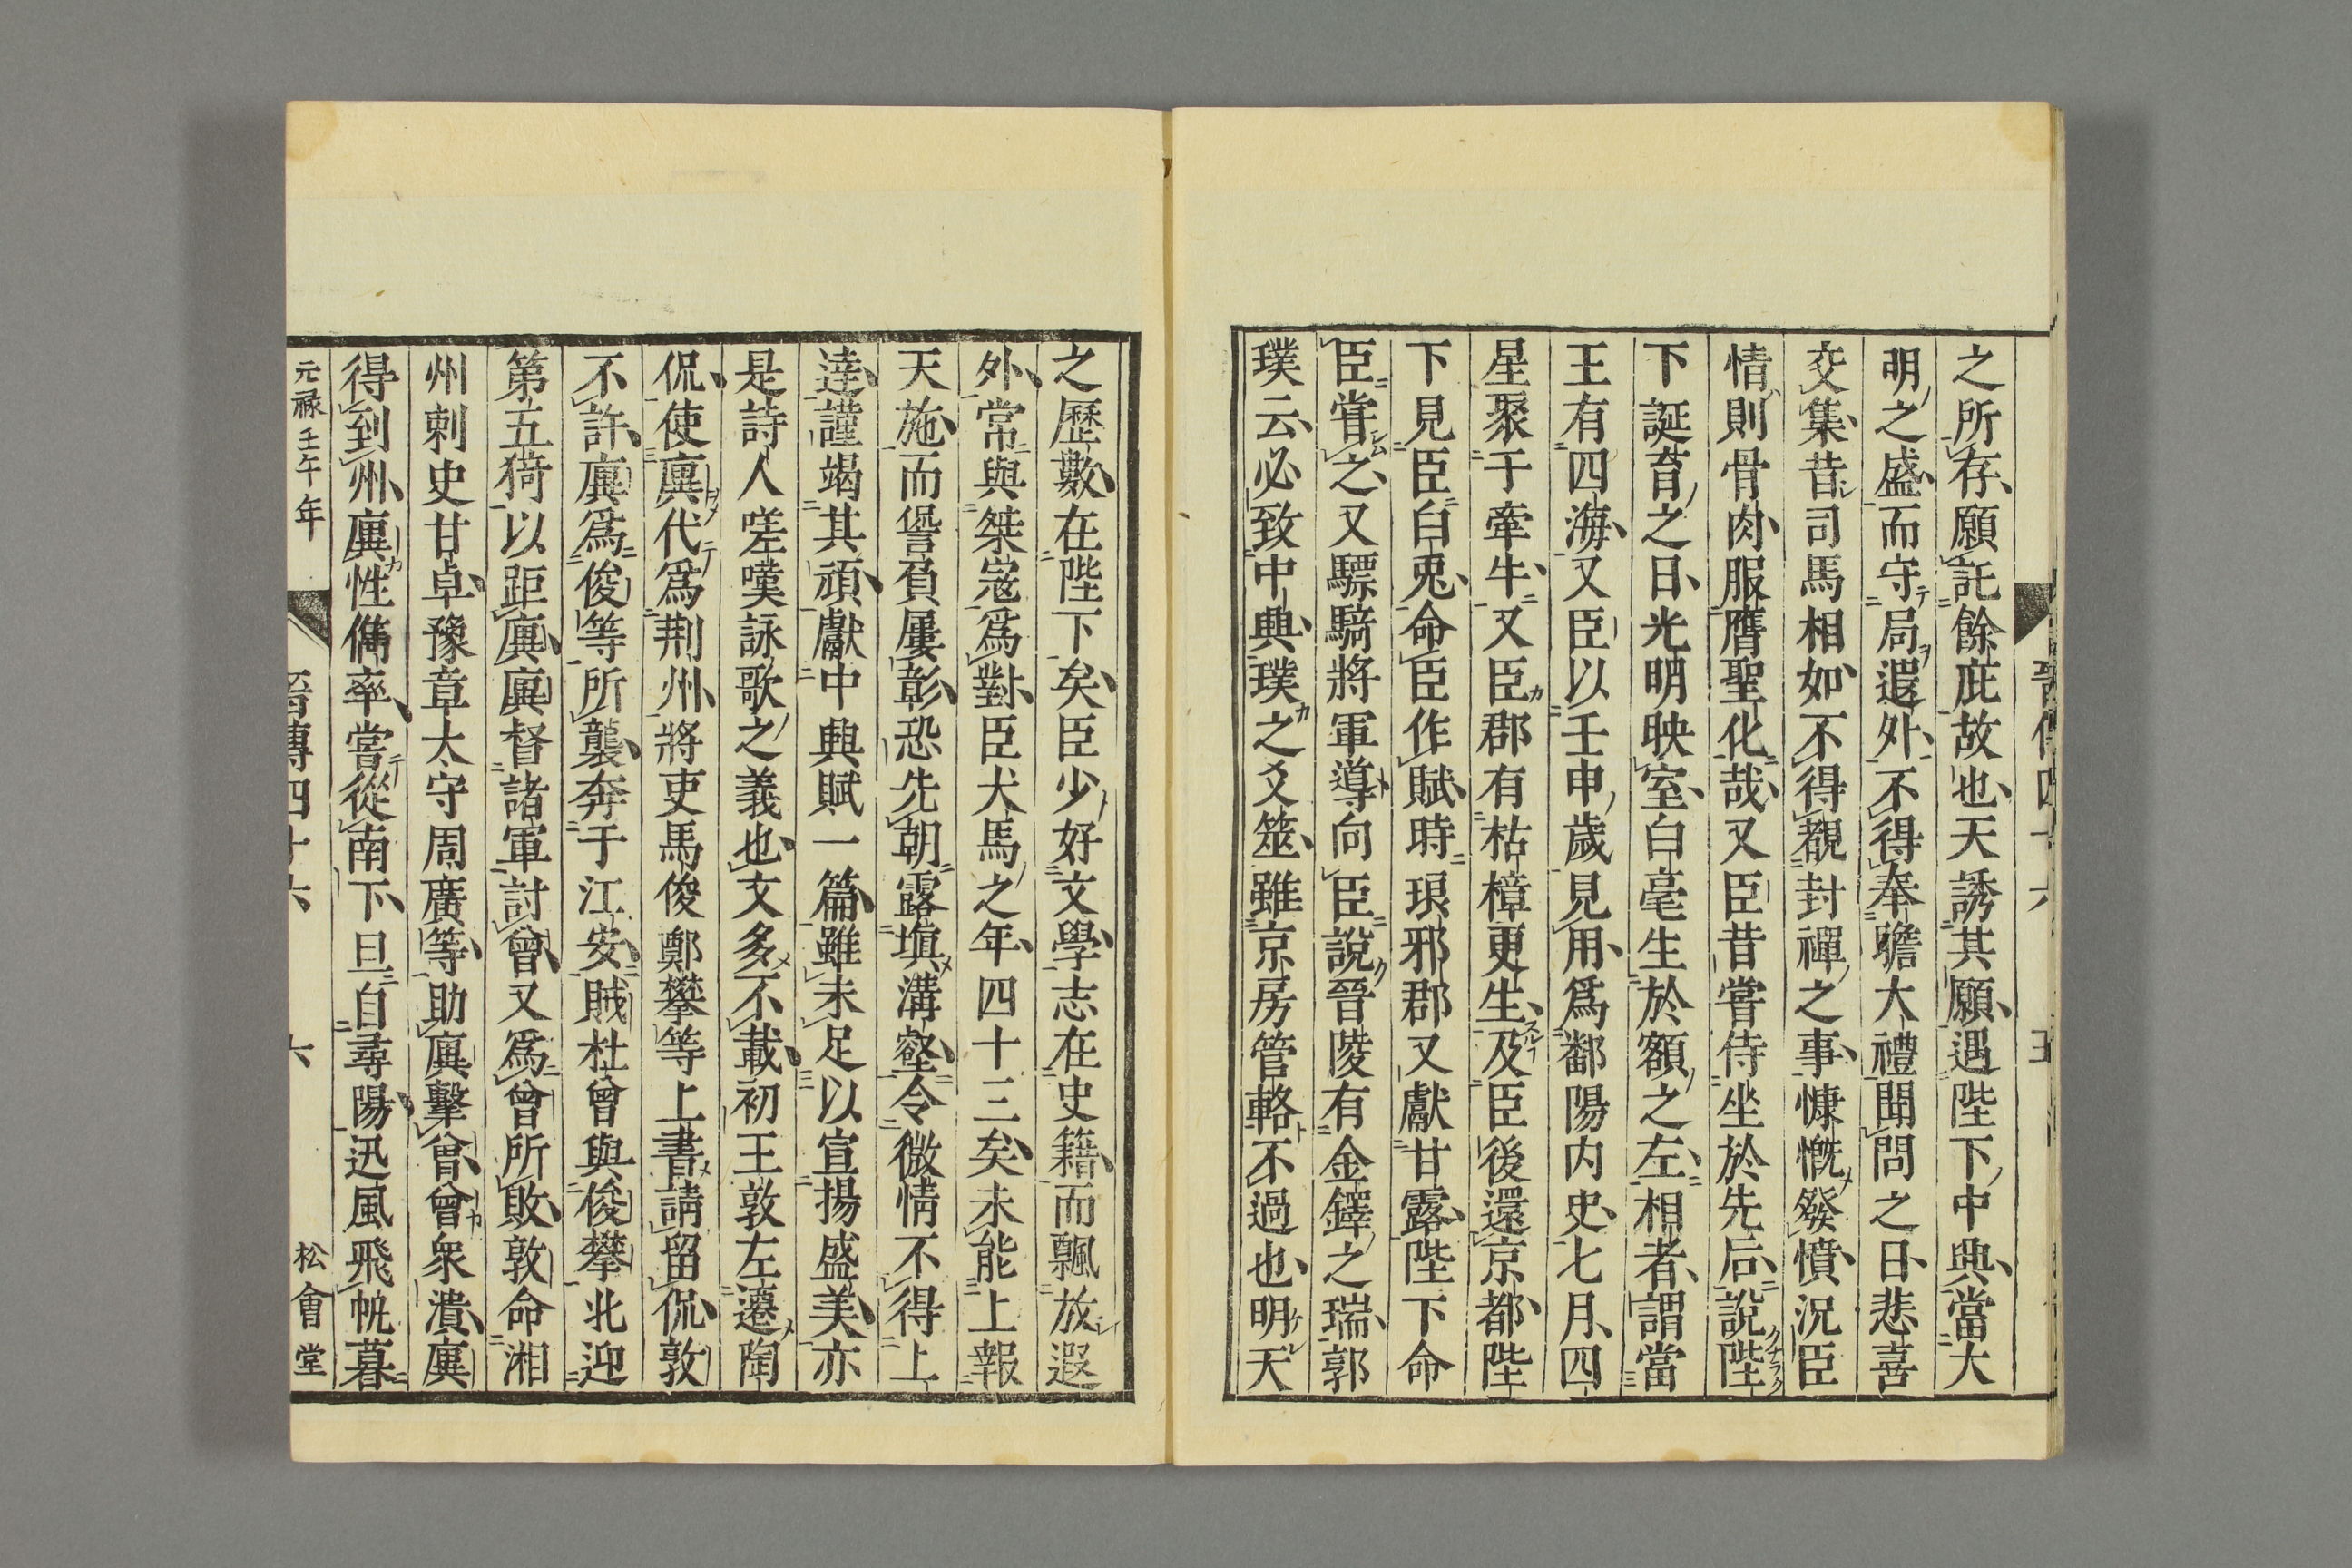 晉傳四十六 五
之所存願託餘庇故也天誘其願遇陛下中興當大
明之盛而守局遐外不得奉瞻大禮聞問之日悲喜
交集昔司馬相如不得覩封禪之事慷慨發憤況臣
情則骨肉服膺聖化哉又臣昔嘗侍坐於先后說陛
下誕育之日光明映室白毫生於額之左相者謂當
王有四海又臣以壬申歲見用爲鄱陽内史七月四
星聚于牽牛又臣郡有枯樟更生及臣後還京都陛
下見臣白兎命臣作賦時琅邪郡又獻甘露陛下命
臣甞之又驃騎將軍導向臣說晉陵有金鐸之瑞郭
璞云必致中興璞之爻筮雖京房管輅不過也明天
之歷數在陛下矣臣少好文學志在史籍而飄放遐
外常與桀寇爲對臣犬馬之年四十三矣未能上報
天施而諐負屢彰恐先朝露塡溝壑令微情不得上
達謹竭其頑獻中興賦一篇雖未足以宣揚盛美亦
是詩人嗟嘆詠歌之義也文多不載初王敦左遷陶
侃使廙代爲荆州將吏馬俊鄭攀等上書請留侃敦
不許廙爲俊等所襲奔于江安賊杜曾與俊攀北迎
第五猗以距廙廙督諸軍討曾又爲曾所敗敦命湘
州刺史甘卓豫章太守周廣等助廙擊曾曾衆潰廙
得到州廙性倜率嘗從南下旦自尋陽迅風飛帆暮
元禄壬午年 晉傳四十六 六 松會堂